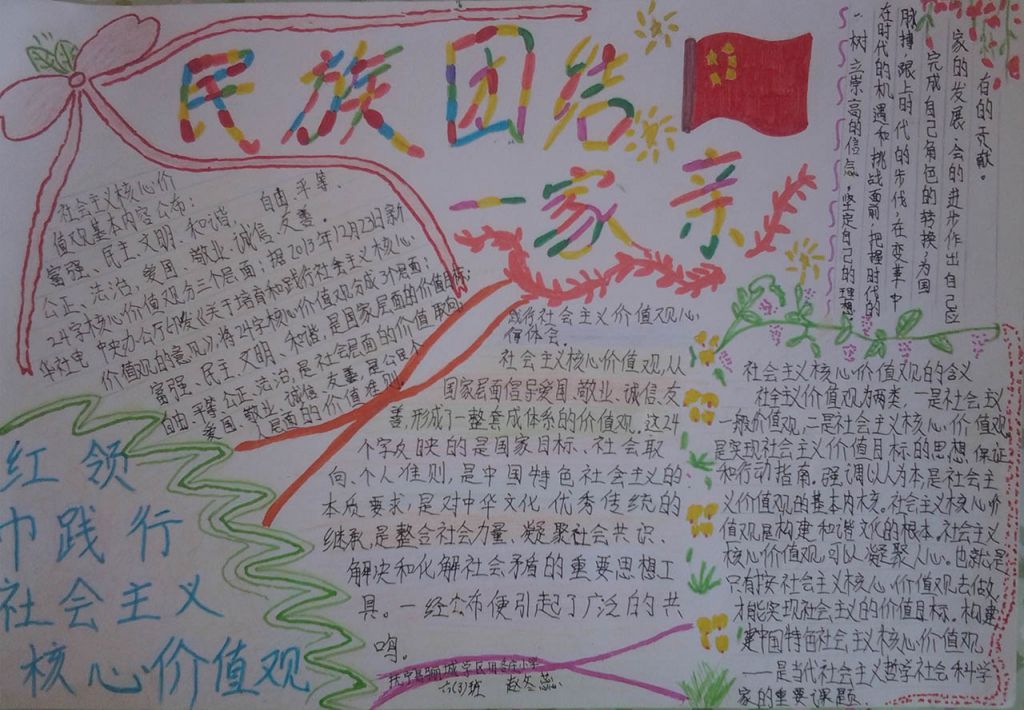 民族团结
一家亲
社会主义核心价
值观基本内容公布:
富强、民主、文明、和谐、自由、平等、
公正、法治、爱国、敬业、诚信、友善。
24字核心价值观分三个层面:据2013年12月23日新
华社电 中央办公厅印发《关于培育和践行社会主义核心
价值观的意见》,将24字核心价值观分成3个层面:
富强、民主、文明、和谐,是国家层面的价值目标;
自由、平等、公正、法治,是社会层面的价值取向;
爱国、敬业、诚信、友善,是公民个
人层面的价值准则
红领
巾践行
社会主义
核心价值观
践行社会主义价值观心
得体会。
社会主义核心价值观,从
国家层面倡导爱国、敬业、诚信、友
善,形成了一整套成体系的价值观。这24
个字反映的是国家目标、社会取
向、个人准则,是中国特色社会主义的
本质要求,是对中华文化优秀传统的
继承,是整合社会力量、凝聚社会共识、
解决和化解社会矛盾的重要思想工
具。一经公布便引起了广泛的共
鸣。
六(3)班
一树立崇高的信念,坚定自己的理想
在时代的机遇和挑战面前,把握时代的
脉搏,跟上时代的步伐,在变革中
完成自己角色的转换,为国
家的发展会的进步作出自己应
有的贡献。
社会主义核心价值观的含义
社会主义价值观为两类,一是社会主义
一般价值观,二是社会主义核心价值观,
是实现社会主义价值目标的思想保证
和行动指南。强调以人为本,是社会主
义价值观的基本内核。社会主义核心价
值观是构建和谐文化的根本,社会主义
核心价值观,可以凝聚人心。也就是
只有按社会主义核心价值观去做,
才能实现社会主义的价值目标。构建
建中国特色社会主义核心价值观,
一是当代社会主义哲学社会科学
家的重要课题.